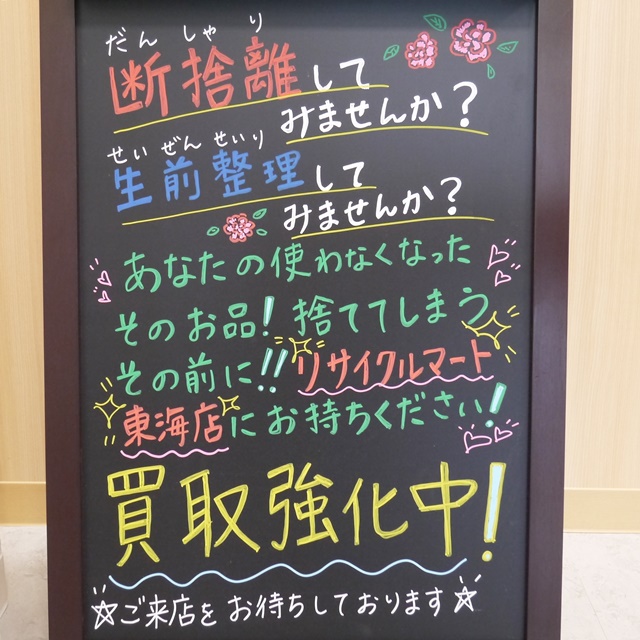 だん しゃ り
断捨離して
みませんか？
せい ぜん せいり
生前整理して
みませんか？
あなたの使わなくなった
そのお品！捨ててしまう
その前に!!リサイクルマート
東海店にお持ちください！
買取強化中！
☆ご来店をお待ちしております☆